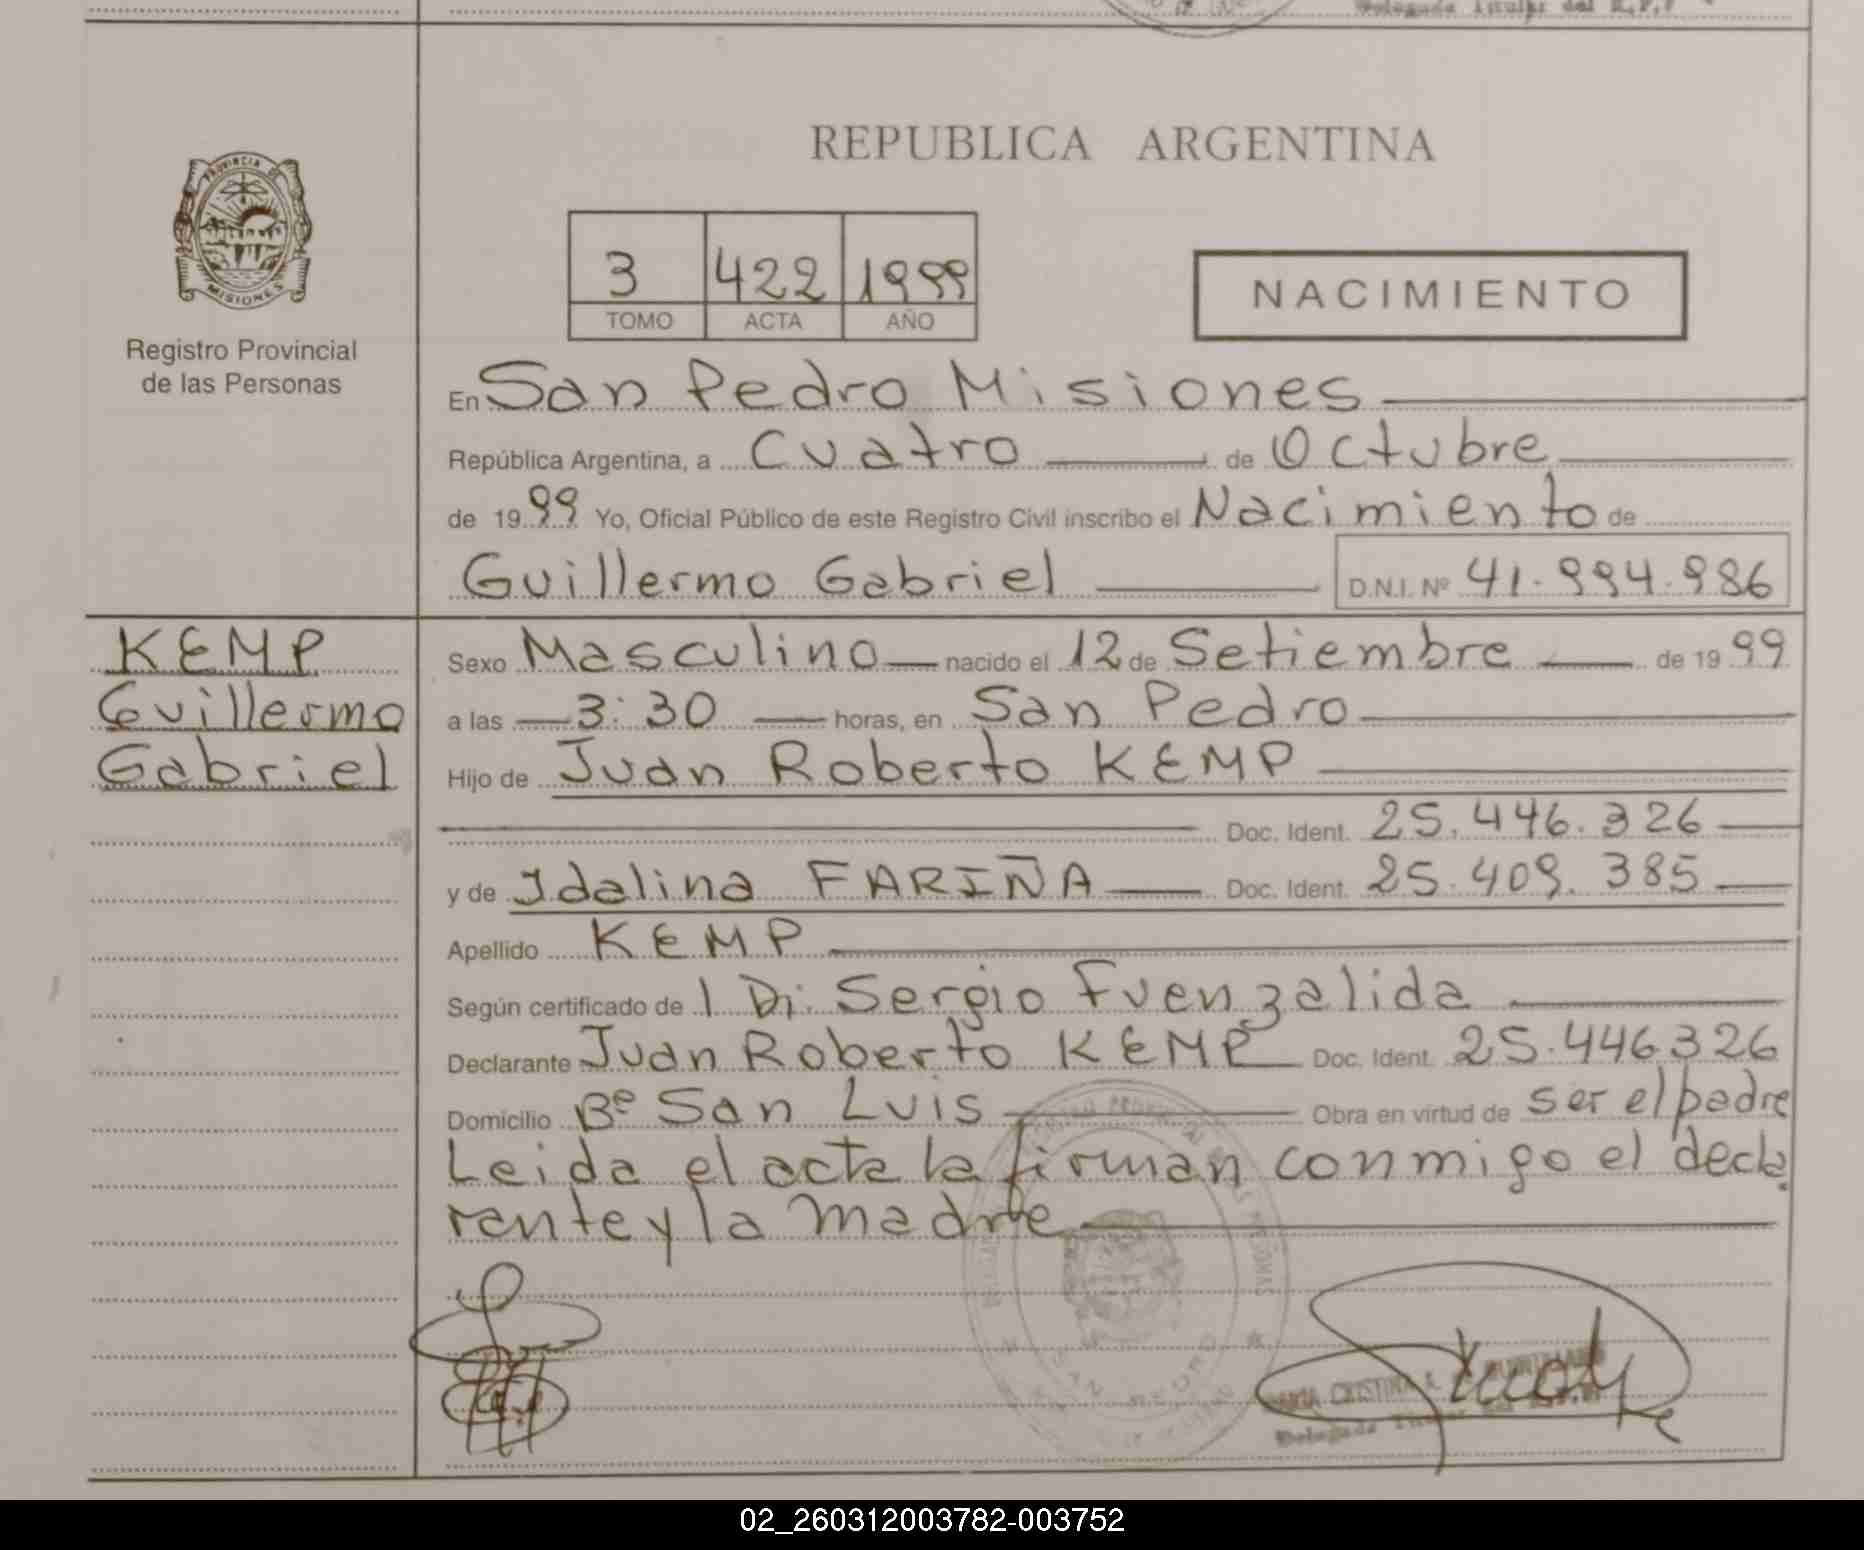 Delegada Titular del R.P.P
PROVINCIA DE
MISIONES
Registro Provincial
de las Personas
REPUBLICA ARGENTINA
3 422 1999
TOMO ACTA AÑO
NACIMIENTO
En San Pedro Misiones
República Argentina, a Cuatro de Octubre
de 1999 Yo, Oficial Público de este Registro Civil inscribo el Nacimiento de
Guillermo Gabriel D.N.I. Nº 41.994.986
KEMP
Guillermo
Gabriel
Sexo Masculino nacido el 12 de Setiembre de 1999
a las 3:30 horas, en San Pedro
Hijo de Juan Roberto KEMP
Doc. Ident. 25.446.326
y de Idalina FARIÑA Doc. Ident. 25.409.385
Apellido KEMP
Según certificado de l Dr. Sergio Fuenzalida
Declarante Juan Roberto KEMP Doc. Ident. 25.446326
Domicilio Bº San Luis Obra en virtud de ser el padre
Leida el acta la firman conmigo el decla
rante y la madre
SAN PEDRO
MARIA CRISTINA
Delegada Titular del R.P.P.
02_260312003782-003752